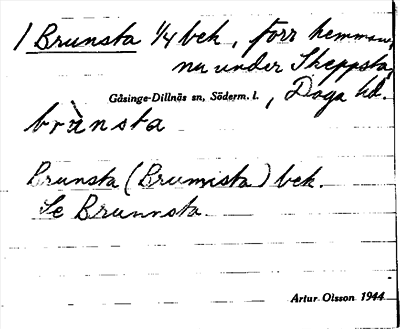 1 Brunsta 1/4 bek, förr hemman,
nu under Skeppsta,
Gåsinge-Dillnäs sn, Söderm. l., Daga hd.
brùnsta
Brunsta (Brumista) bek.
Se Brunnsta.
Artur Olsson 1944